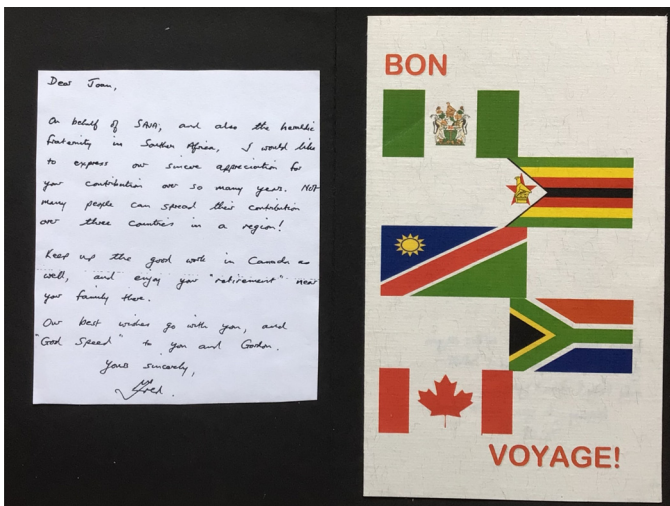 Dear Joan,
On behalf of SAVA, and also the heraldic
fraternity in Southern Africa, I would like
to express our sincere appreciation for
your contribution over so many years. Not
many people can spread their contribution
over three countries in a region!
Keep up the good work in Canada as
well, and enjoy your "retirement" near
your family there.
Our best wishes go with you, and
"God Speed" to you and Gordon.
Yours sincerely,
Fred.
BON
VOYAGE!